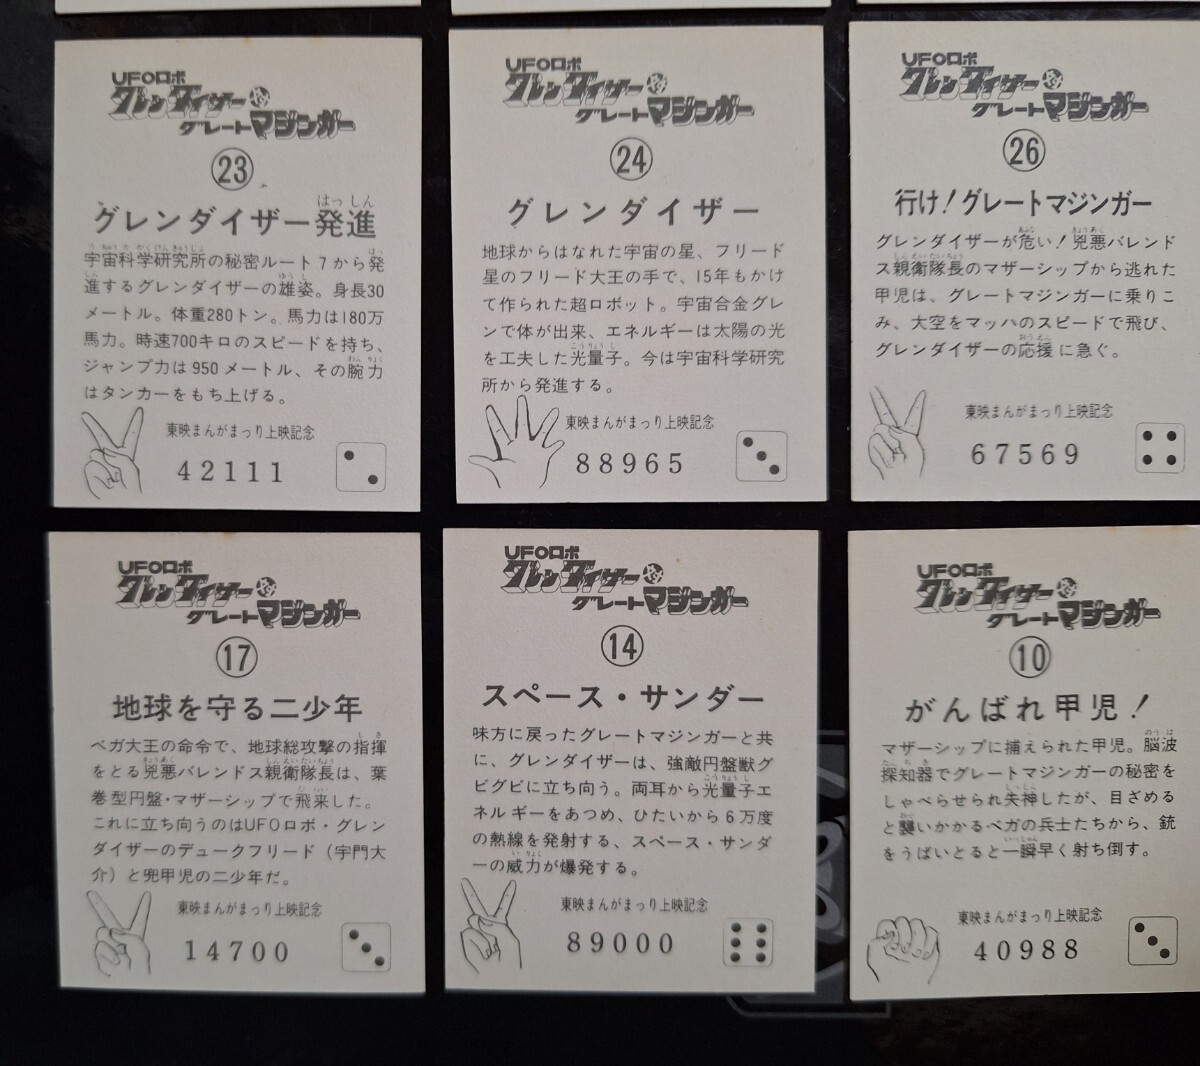 UFOロボ
グレンダイザー対
グレートマジンガー
23
はっしん
グレンダイザー発進
宇宙科学研究所の秘密ルート7から発
進するグレンダイザーの雄姿。身長30
メートル。体重280トン。馬力は180万
馬力。時速700キロのスピードを持ち、
ジャンプ力は950メートル、その腕力
はタンカーをもち上げる。
東映まんがまつり上映記念
42111
UFOロボ
グレンダイザー対
グレートマジンガー
24
グレンダイザー
地球からはなれた宇宙の星、フリード
星のフリード大王の手で、15年もかけ
て作られた超ロボット。宇宙合金グレ
ンで体が出来、エネルギーは太陽の光
を工夫した光量子。今は宇宙科学研究
所から発進する。
東映まんがまつり上映記念
88965
UFOロボ
グレンダイザー対
グレートマジンガー
26
行け!グレートマジンガー
グレンダイザーが危い!兇悪バレンド
ス親衛隊長のマザーシップから逃れた
甲児は、グレートマジンガーに乗りこ
み、大空をマッハのスピードで飛び、
グレンダイザーの応援に急ぐ。
東映まんがまつり上映記念
67569
UFOロボ
グレンダイザー対
グレートマジンガー
17
地球を守る二少年
ベガ大王の命令で、地球総攻撃の指揮
をとる兇悪バレンドス親衛隊長は、葉
巻型円盤・マザーシップで飛来した。
これに立ち向うのはUFOロボ・グレン
ダイザーのデュークフリード（宇門大
介）と兜甲児の二少年だ。
東映まんがまつり上映記念
14700
UFOロボ
グレンダイザー対
グレートマジンガー
14
スペース・サンダー
味方に戻ったグレートマジンガーと共
に、グレンダイザーは、強敵円盤獣グ
ビグビに立ち向う。両耳から光量子エ
ネルギーをあつめ、ひたいから6万度
の熱線を発射する、スペース・サンダ
ーの威力が爆発する。
東映まんがまつり上映記念
89000
UFOロボ
グレンダイザー対
グレートマジンガー
10
がんばれ甲児!
マザーシップに捕えられた甲児。脳波
探知器でグレートマジンガーの秘密を
しゃべらせられ失神したが、目ざめる
と襲いかかるベガの兵士たちから、銃
をうばいとると一瞬早く射ち倒す。
東映まんがまつり上映記念
40988